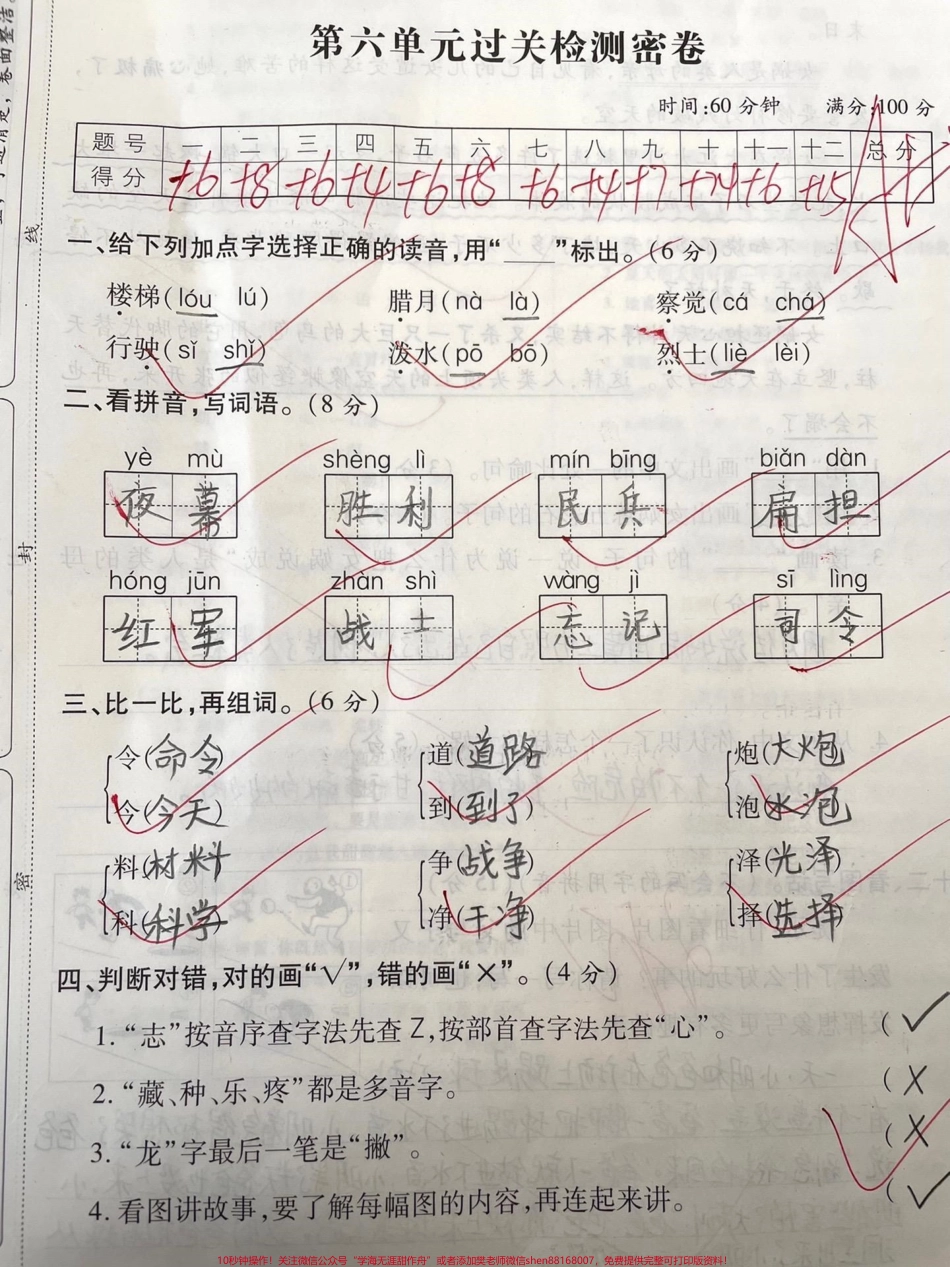 第六单元过关检测密卷
时间:60分钟 满分:100分
题号 二 三 四 五 六 七 八 九 十 十一 十二 总分
得分 +6 +8 +6 +4 +6 +8 +6 +4 +7 +24 +6 +15
一、给下列加点字选择正确的读音,用“____”标出。(6分)
楼梯(lóu lú) 腊月(nà là) 察觉(cá chá)
行驶(sǐ shǐ) 泼水(pō bō) 烈士(liè lèi)
二、看拼音,写词语。(8分)
yè mù shèng lì mín bīng biǎn dàn
夜幕 胜利 民兵 扁担
hóng jūn zhàn shì wàng jì sī lìng
红军 战士 忘记 司令
三、比一比,再组词。(6分)
令(命令) 道(道路) 炮(大炮)
今(今天) 到(到了) 泡(水泡)
料(材料) 争(战争) 泽(光泽)
科(科学) 净(干净) 择(选择)
四、判断对错,对的画“√”,错的画“×”。(4分)
1. “志”按音序查字法先查Z,按部首查字法先查“心”。 (√
2. “藏、种、乐、疼”都是多音字。 (×
3. “龙”字最后一笔是“撇”。 (×
4. 看图讲故事,要了解每幅图的内容,再连起来讲。 (√
线
封
密
10秒钟操作!关注微信公众号“学海无涯甜作舟”或者添加樊老师微信shen88168007,免费提供完整可打印版资料!